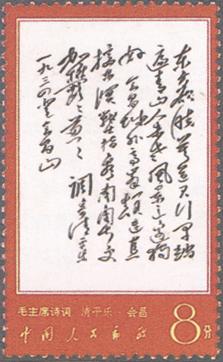 东方欲晓莫道君行早踏
遍青山人未老风景这边独
好 会昌城外高峰颠连直
接东溟战士指看南粤更
加郁郁葱葱 调寄清平乐
一九三四年登会昌山
毛主席诗词 清平乐·会昌
中国人民邮政 8分